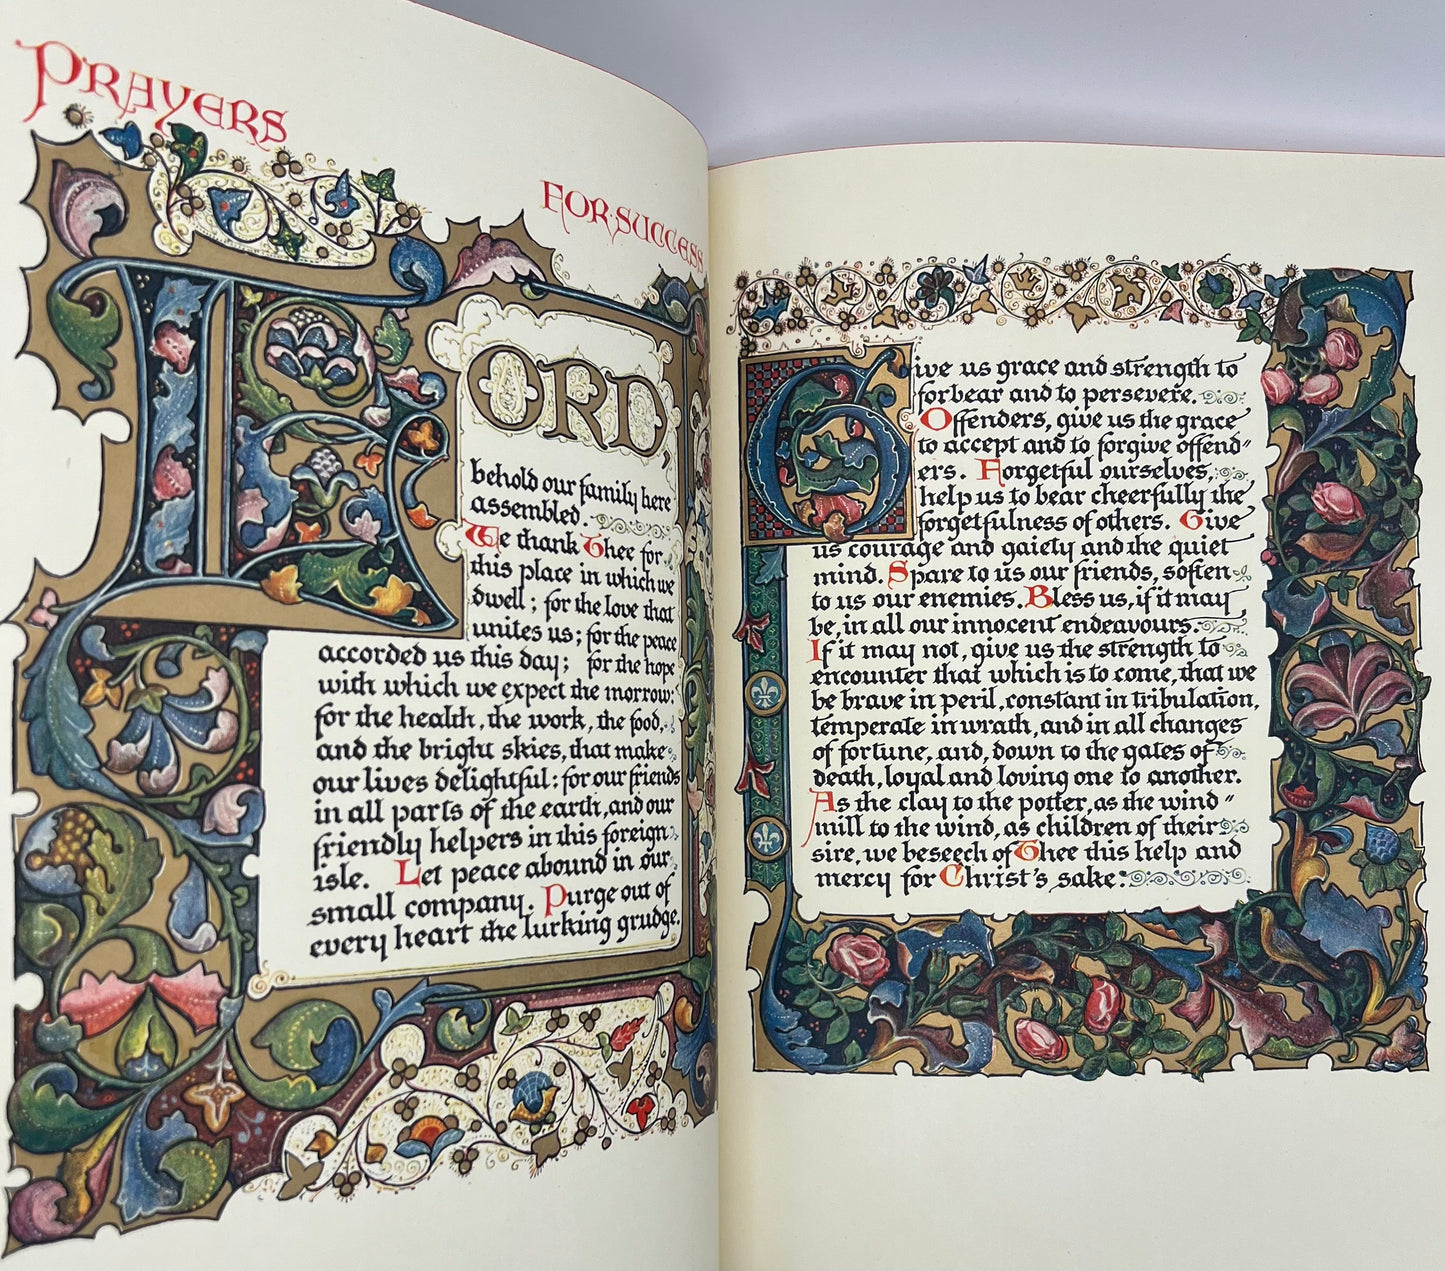 PRAYERS
FOR·SUCCESS
LORD,
behold our family here
assembled.
We thank Thee for
this place in which we
dwell; for the love that
unites us; for the peace
accorded us this day; for the hope
with which we expect the morrow;
for the health, the work, the food,
and the bright skies, that make
our lives delightful; for our friends
in all parts of the earth, and our
friendly helpers in this foreign
isle. Let peace abound in our
small company. Purge out of
every heart the lurking grudge.
Give us grace and strength to
forbear and to persevere.
Offenders, give us the grace
to accept and to forgive offend"
ers. Forgetful ourselves,
help us to bear cheerfully the
forgetfulness of others. Give
us courage and gaiety and the quiet
mind. Spare to us our friends, soften
to us our enemies. Bless us, if it may
be, in all our innocent endeavours.
If it may not, give us the strength to
encounter that which is to come, that we
be brave in peril, constant in tribulation,
temperate in wrath, and in all changes
of fortune, and, down to the gates of
death, loyal and loving one to another.
As the clay to the potter, as the wind"
mill to the wind, as children of their
sire, we beseech of Thee this help and
mercy for Christ's sake: